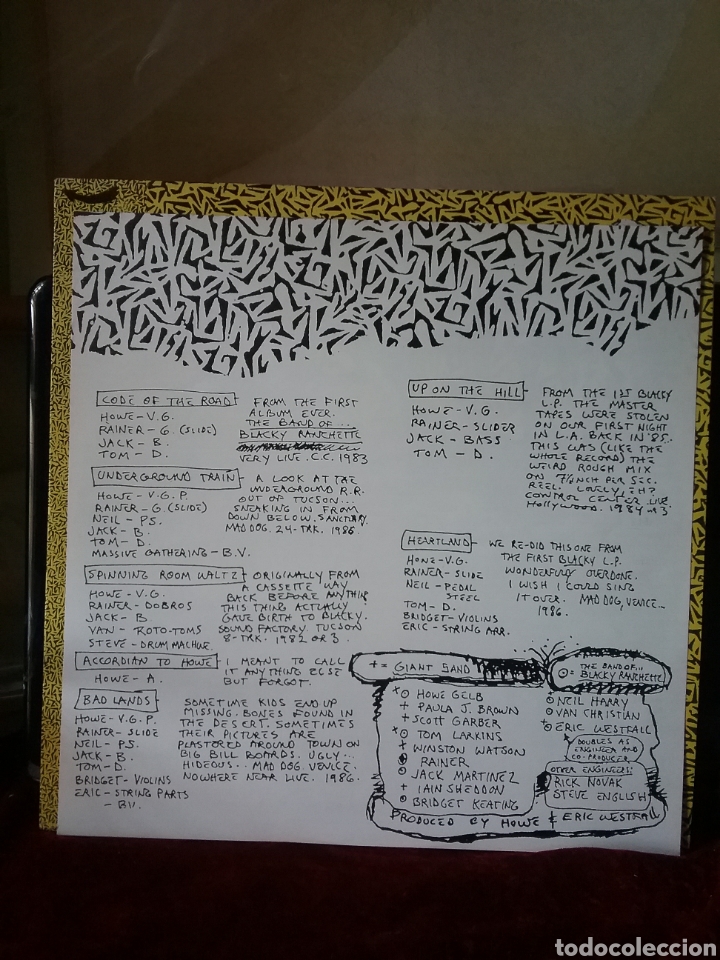 CODE OF THE ROAD
HOWE - V.G.
RAINER - G. (SLIDE)
JACK - B.
TOM - D.
FROM THE FIRST
ALBUM EVER.
THE BAND OF...
BLACKY RANCHETTE
VERY LIVE. C.C. 1983
UNDERGROUND TRAIN
HOWE - V.G.P.
RAINER - G. (SLIDE)
NEIL - P.S.
JACK - B.
TOM - D.
MASSIVE GATHERING - B.V.
A LOOK AT THE
UNDERGROUND R.R.
OUT OF TUCSON...
SNEAKING IN FROM
DOWN BELOW. SANCTUARY.
MAD DOG. 24-TRK. 1986.
SPINNING ROOM WALTZ
HOWE - V.G.
RAINER - DOBROS
JACK - B.
VAN - ROTO-TOMS
STEVE - DRUM MACHINE
ORIGINALLY FROM
A CASSETTE WAY
BACK BEFORE ANYTHING
THIS THING ACTUALLY
GAVE BIRTH TO BLACKY.
SOUND FACTORY TUCSON
8-TRK. 1982 OR 3.
ACCORDIAN TO HOWE
HOWE - A.
I MEANT TO CALL
IT ANYTHING ELSE
BUT FORGOT.
BAD LANDS
HOWE - V.G.P.
RAINER - SLIDE
NEIL - P.S.
JACK - B.
TOM - D.
BRIDGET - VIOLINS
ERIC - STRING PARTS
- B.V.
SOMETIME KIDS END UP
MISSING. BONES FOUND IN
THE DESERT. SOMETIMES
THEIR PICTURES ARE
PLASTERED AROUND TOWN ON
BIG BILL BOARDS. UGLY...
HIDEOUS... MAD DOG VENICE.
NOWHERE NEAR LIVE. 1986.
UP ON THE HILL
HOWE - V.G.
RAINER - SLIDER
JACK - BASS
TOM - D.
FROM THE 1ST BLACKY
L.P. THE MASTER
TAPES WERE STOLEN
ON OUR FIRST NIGHT
IN L.A. BACK IN '85.
THIS WAS (LIKE THE
WHOLE RECORD) THE
WEIRD ROUGH MIX
ON 7½ INCH PER SEC.
REEL. LOVELY, EH?
CONTROL CENTER. LIVE.
HOLLYWOOD. 1984-R3
HEARTLAND
HOWE - V.G.
RAINER - SLIDE
NEIL - PEDAL
STEEL
TOM - D.
BRIDGET - VIOLINS
ERIC - STRING ARR.
WE RE-DID THIS ONE FROM
THE FIRST BLACKY L.P.
WONDERFULLY OVERDONE.
I WISH I COULD SING
IT OVER. MAD DOG, VENICE--
1986.
+ = GIANT SAND
+O HOWE GELB
+ PAULA J. BROWN
+ SCOTT GARBER
+O TOM LARKINS
+ WINSTON WATSON
O RAINER
O JACK MARTINEZ
+ IAIN SHEDDON
O BRIDGET KEATING
O = THE BAND OF...
BLACKY RANCHETTE
O NEIL HARRY
O VAN CHRISTIAN
+O ERIC WESTFALL
DOUBLES AS
ENGINEER AND
CO-PRODUCER
OTHER ENGINEERS:
RICK NOVAK
STEVE ENGLISH
PRODUCED BY HOWE & ERIC WESTFALL
todocoleccion